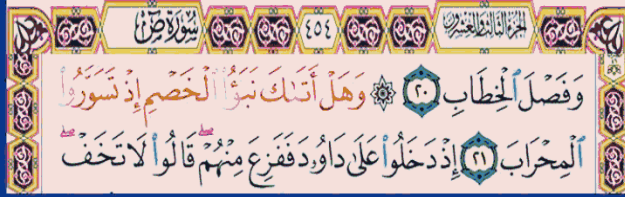 الجزء الثالث والعشرون ٤٥٤ سورة ص
وَفَصْلَ ٱلْخِطَابِ ٢٠ ۞ وَهَلْ أَتَىٰكَ نَبَؤُا۟ ٱلْخَصْمِ إِذْ تَسَوَّرُوا۟
ٱلْمِحْرَابَ ٢١ إِذْ دَخَلُوا۟ عَلَىٰ دَاوُۥدَ فَفَزِعَ مِنْهُمْ ۖ قَالُوا۟ لَا تَخَفْ ۖ